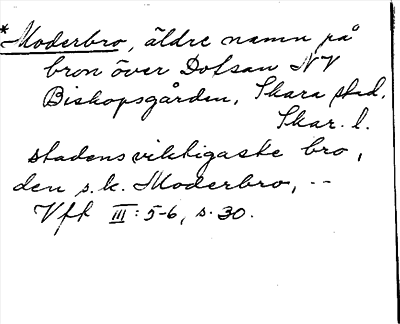 *Moderbro, äldre namn på
bron över Dofsan NV
Biskopsgården, Skara stad.
Skar. l.
stadens viktigaste bro,
den s.k. Moderbro, --
Vft III: 5-6, s. 30.